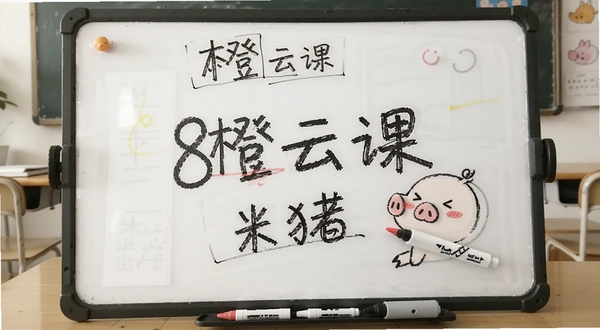 橙云课
8橙云课
米猪